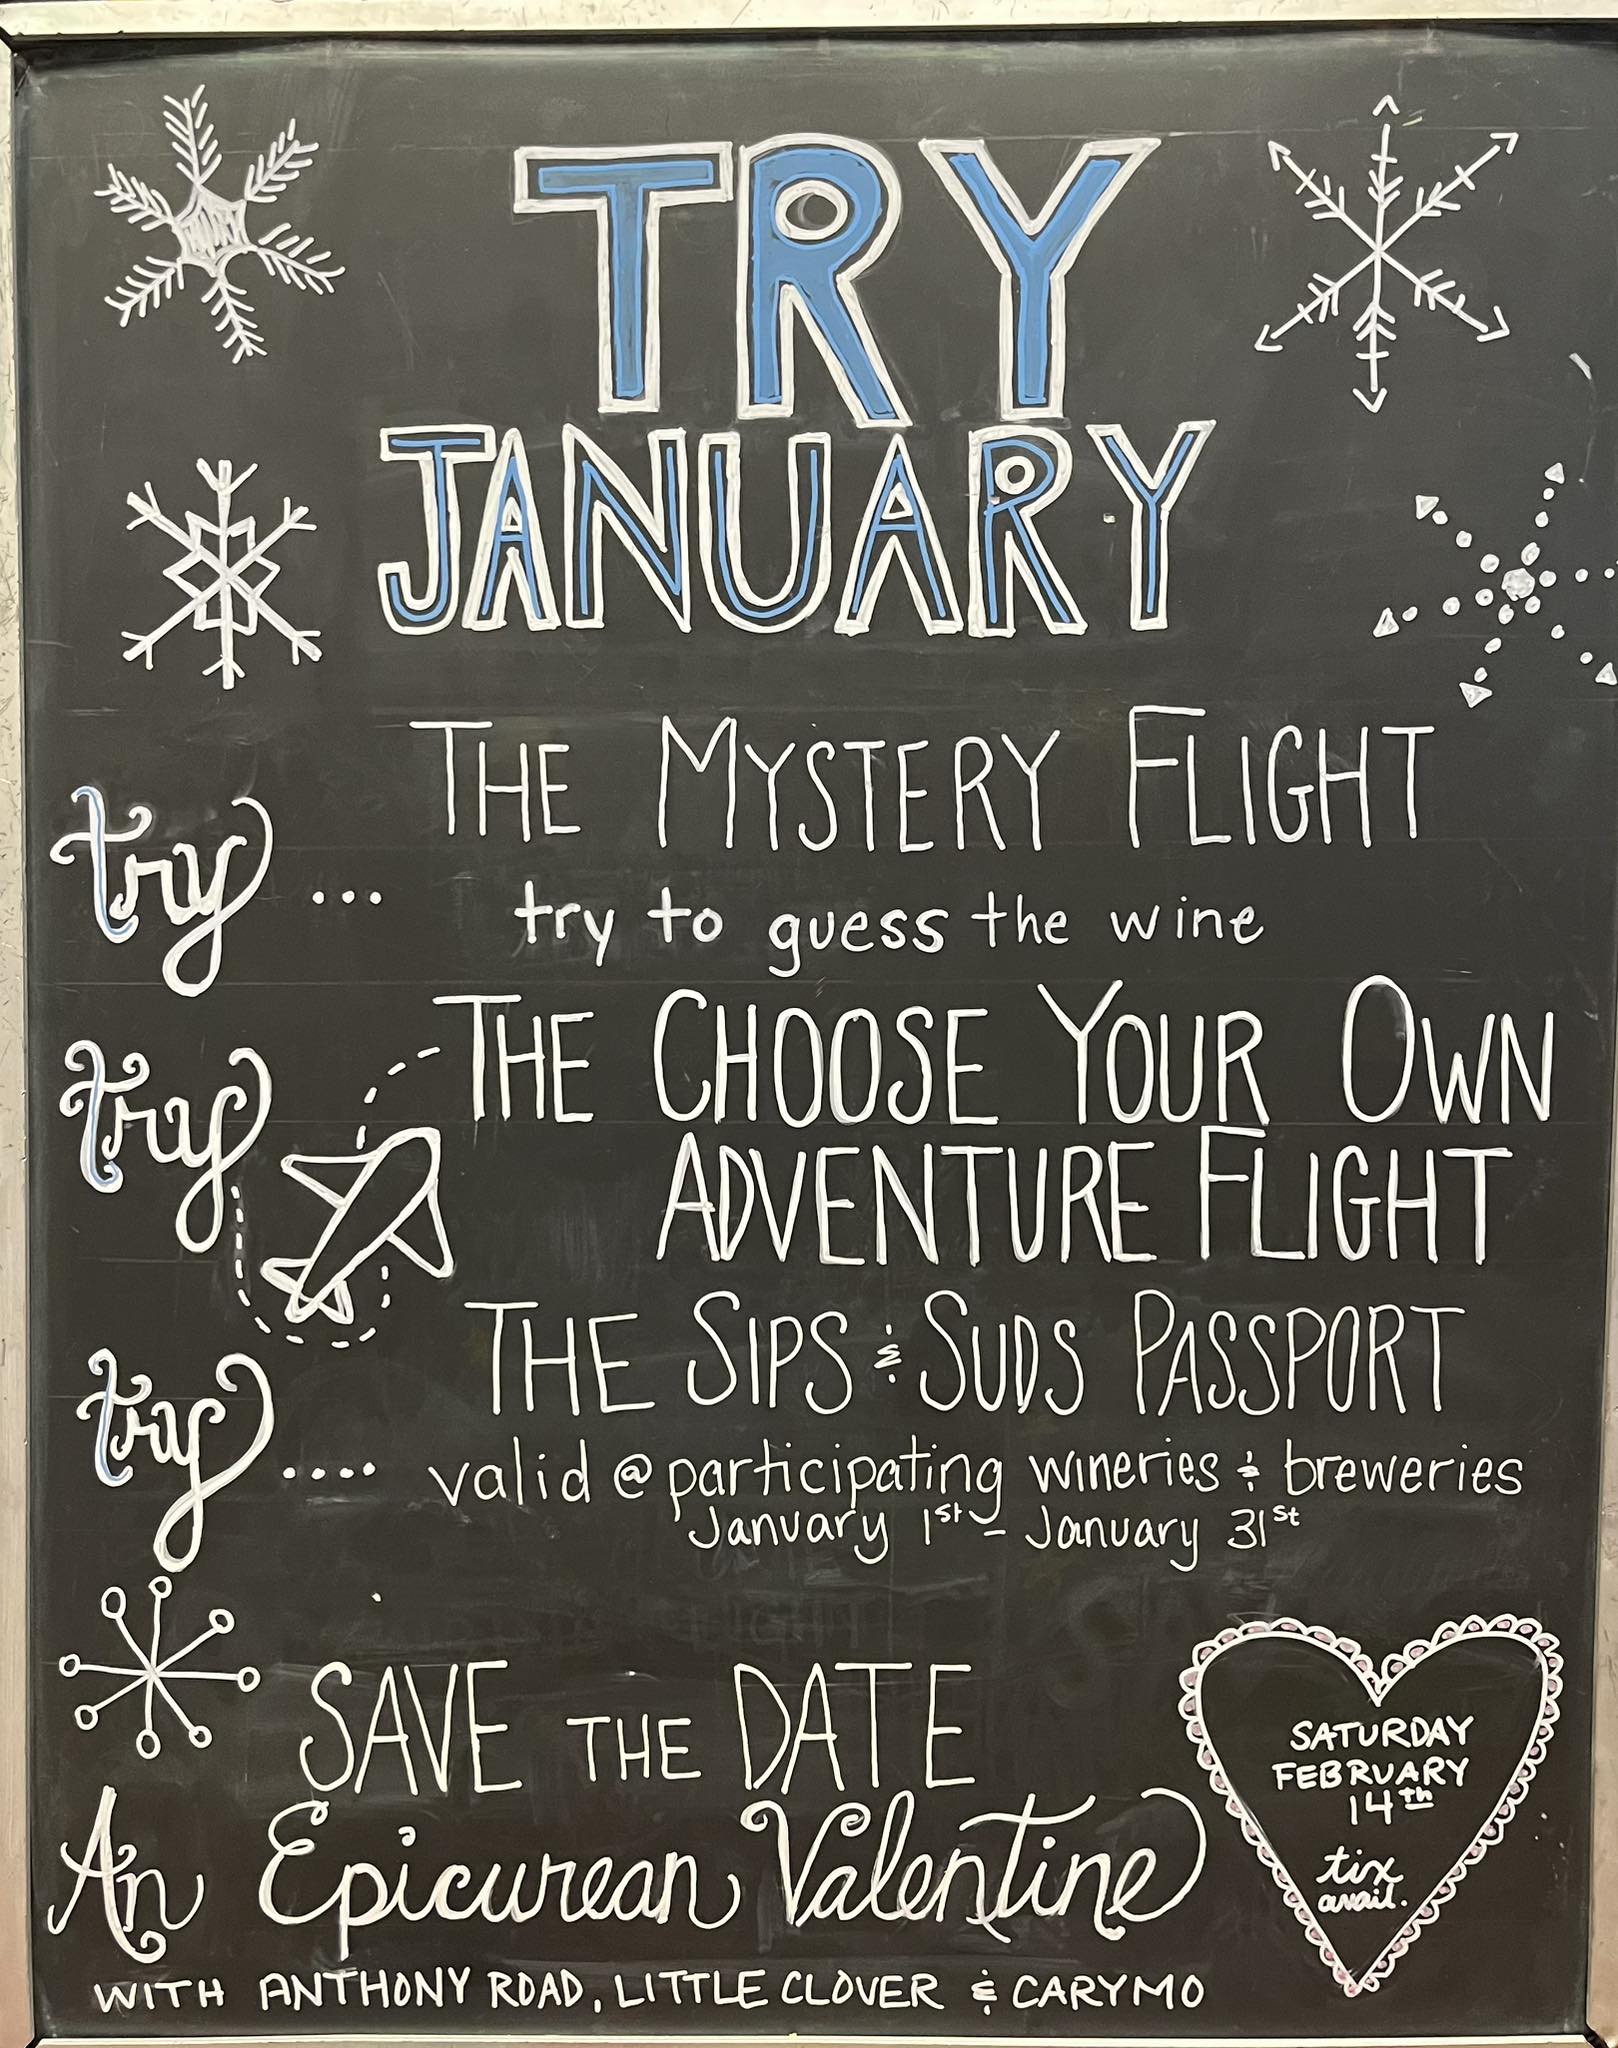 TRY
JANUARY
try... THE MYSTERY FLIGHT
try to guess the wine
try THE CHOOSE YOUR OWN
ADVENTURE FLIGHT
try.... THE SIPS & SUDS PASSPORT
valid @ participating wineries & breweries
January 1st - January 31st
SAVE THE DATE
An Epicurean Valentine
WITH ANTHONY ROAD, LITTLE CLOVER & CARYMO
SATURDAY
FEBRUARY
14th
tix
avail.